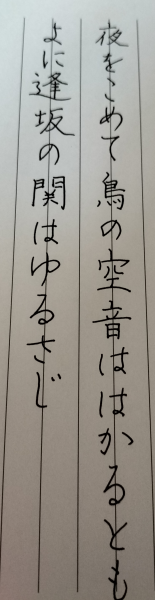 夜をこめて鳥の空音ははかるとも
よに逢坂の関はゆるさじ